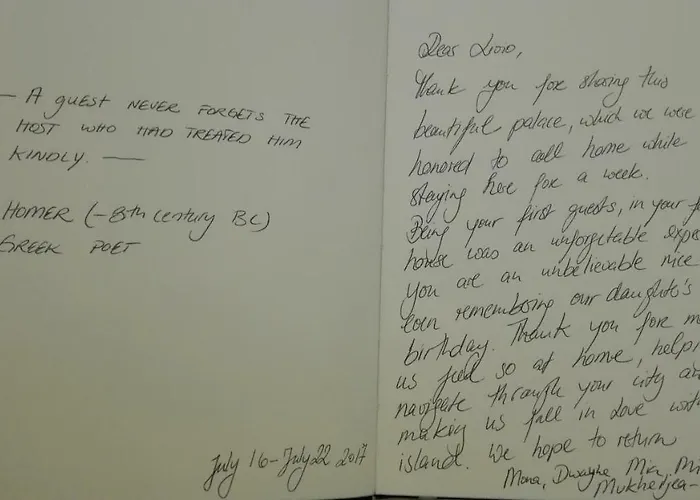 — A GUEST NEVER FORGETS THE
HOST WHO HAD TREATED HIM
KINDLY. —
HOMER (–8th century BC)
GREEK POET
July 16–July 22 2017
Dear
Thank you for sharing this
beautiful palace, which we were
honored to call home while
staying here for a week.
Being your first guests, in your
house was an unforgetable
You are an unbelievable nice
even remembering our daughter's
birthday. Thank you fore
us feel so at home,
navigate through your city
making us fall in love
island. We hope to return
Mona, Dwayne Mia,
Mukherjea-